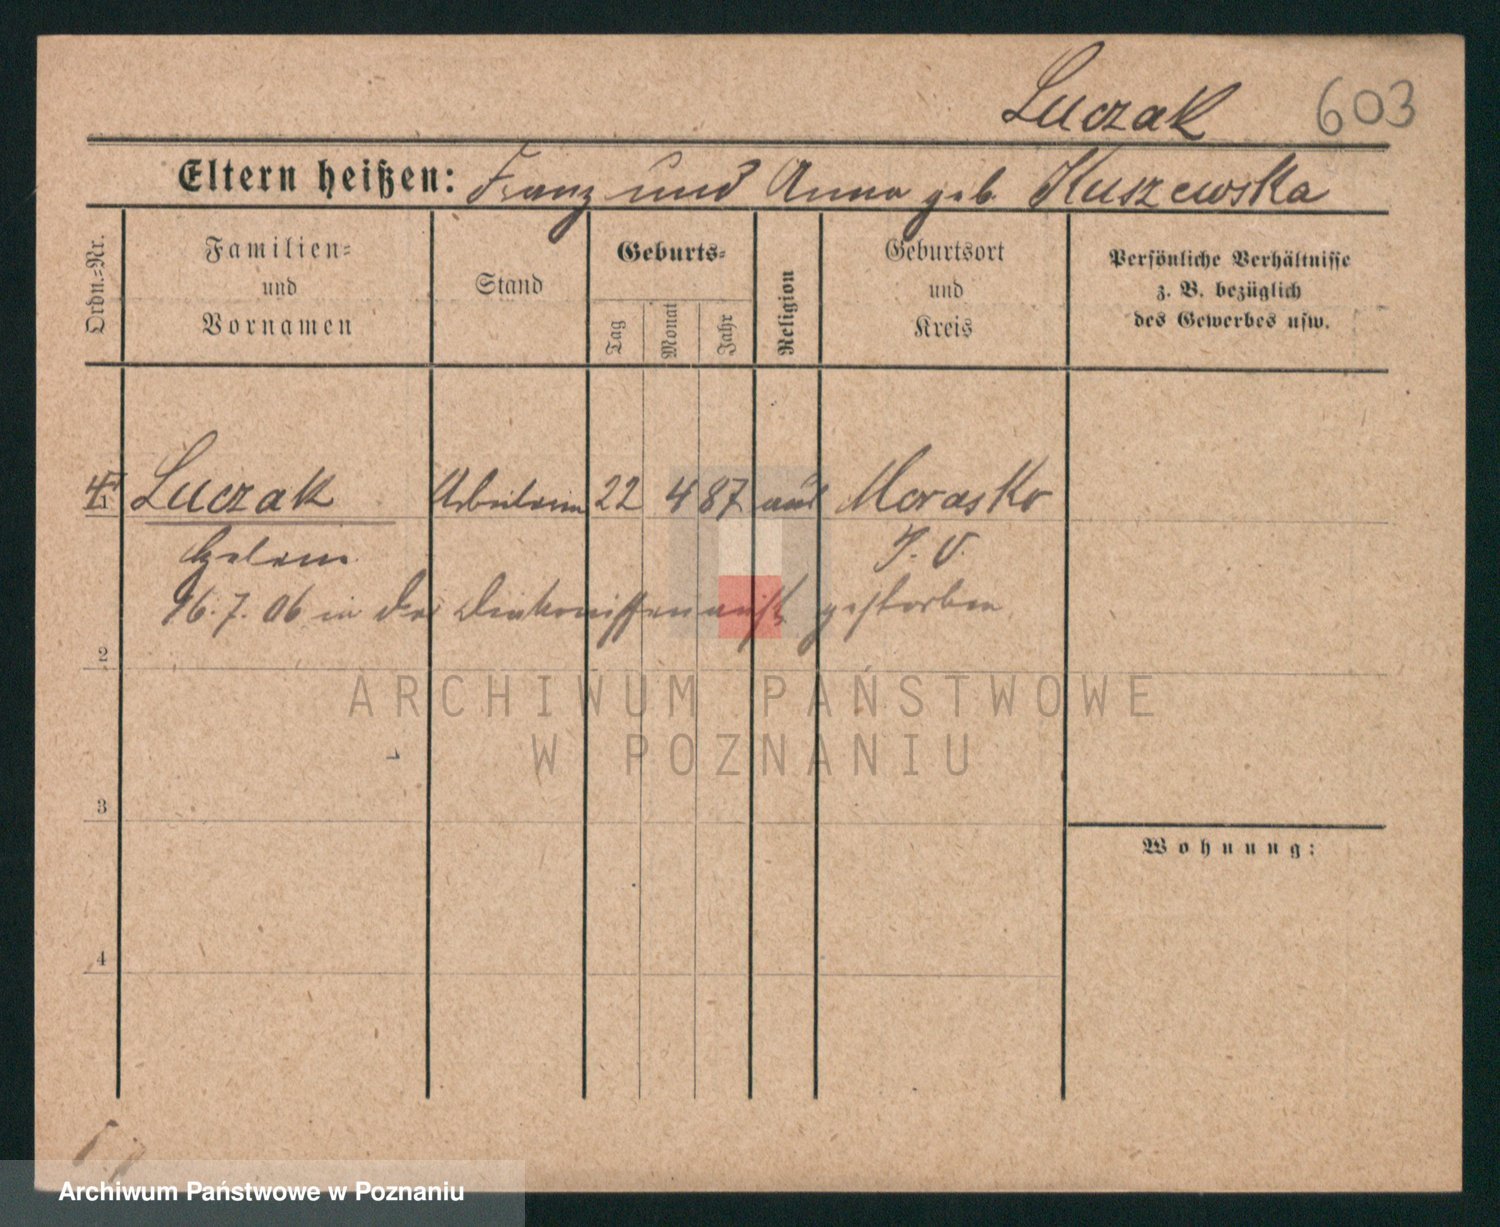 Luczak 603
Eltern heißen: Franz und Anna geb. Kuszewska
Ordn.-Nr.
Familien-
und
Vornamen
Stand
Geburts-
Tag
Monat
Jahr
Religion
Geburtsort
und
Kreis
Persönliche Verhältnisse
z. B. bezüglich
des Gewerbes usw.
Luczak Arbeiterin 22 4 87 Morasko
16.7.06 in der Diakonissenanst gestorben
2
ARCHIWUM PAŃSTWOWE
W POZNANIU
3
Wohnung:
4
Archiwum Państwowe w Poznaniu